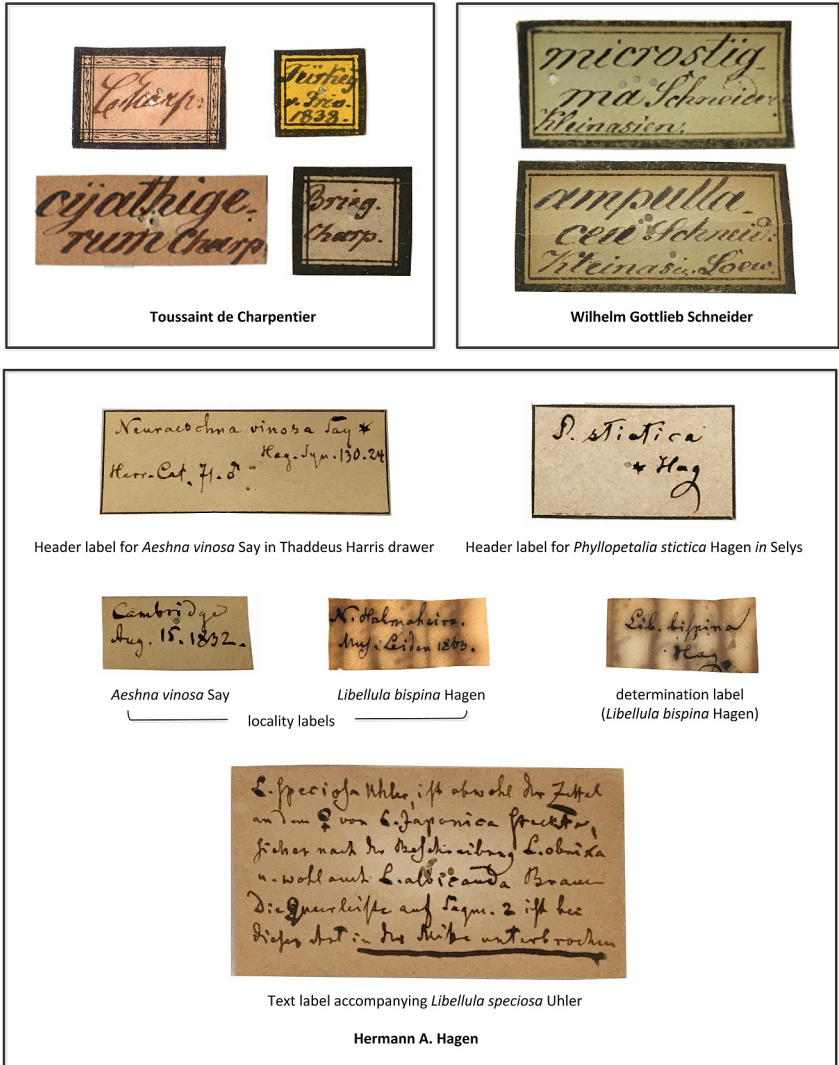 Charp.
Türkey
v. Friv.
1838.
cÿathige-
rum Charp.
Brieg.
Charp.
Toussaint de Charpentier
microstig-
ma Schneider.
Kleinasien.
ampulla-
cea Schneid.
Kleinasien. Loew.
Wilhelm Gottlieb Schneider
Neuraeschna vinosa Say *
Hag. Syn. 130. 24
Harr. Cat. 71. ♂
P. stictica
* Hag
Header label for Aeshna vinosa Say in Thaddeus Harris drawer
Header label for Phyllopetalia stictica Hagen in Selys
Cambridge
Aug. 15. 1832.
N. Halmaheira.
Mus. Leiden 1863.
Lib. bispina
Hag.
Aeshna vinosa Say
Libellula bispina Hagen
locality labels
determination label
(Libellula bispina Hagen)
L. speciosa Uhler, ist obwohl der Zettel
an dem ♀ von L. Japonica steckte,
sicher nach der Beschreibung L. obnixa
u. wohl auch L. albicauda Brauer
Die Querleiste auf Segm. 2 ist bei
dieser Art in der Mitte unterbrochen
Text label accompanying Libellula speciosa Uhler
Hermann A. Hagen